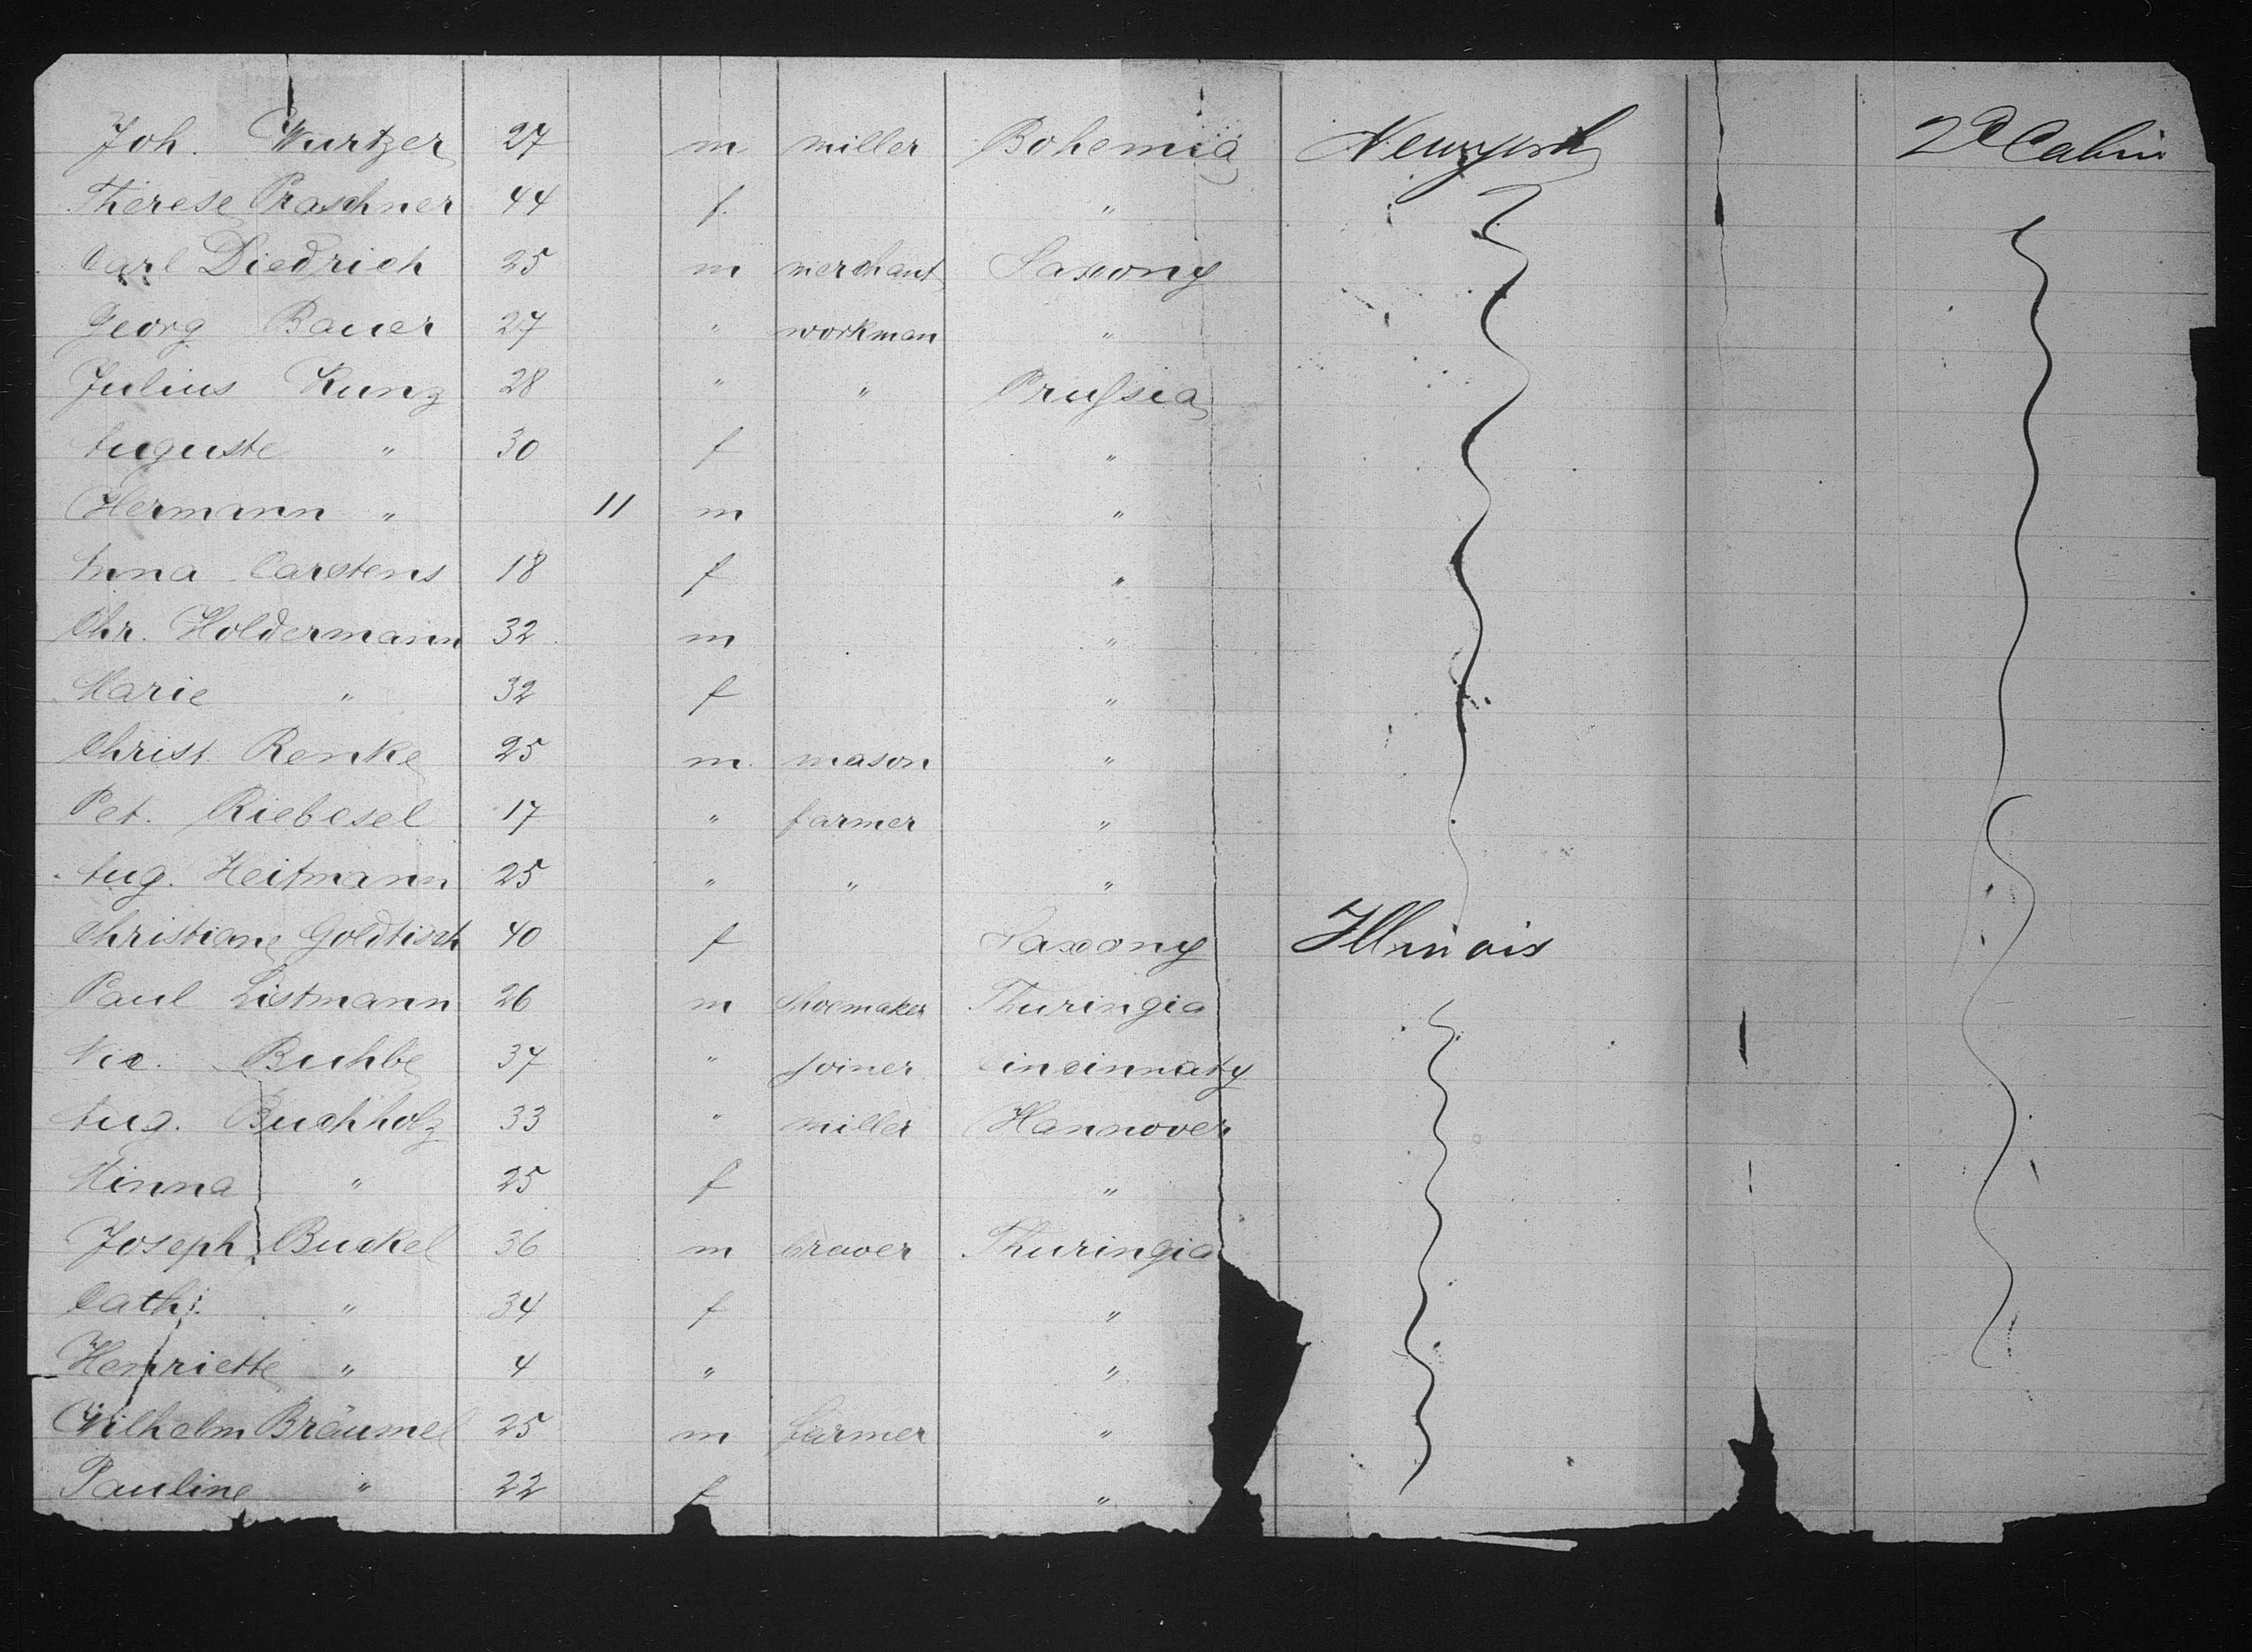 Joh. Wurtzer 27 m miller Bohemia Newyork 2d Cabin
Therese Praschner 44 f. "
Carl Diedrich 25 m merchant Saxony
Georg Bauer 27 " workman "
Julius Kunz 28 " " Prussia
Auguste " 30 f "
Hermann " 11 m "
Anna Carstens 18 f "
Chr. Holdermann 32 m "
Marie " 32 f "
Christ. Renke 25 m. mason "
Pet. Riebesel 17 " farmer "
Aug. Heitmann 25 " " "
Christiane Goldtisch 40 f Saxony Illinois
Paul Listmann 26 m shoemaker Thuringia
Nic. Buhbe 37 " joiner Cincinnaty
Aug. Buchholz 33 " miller Hannover
Minna " 25 f "
Joseph Buckel 36 m braver Thuringia
Cath. " 34 f "
Henriette " 4 " "
Wilhelm Bräumel 25 m farmer "
Pauline " 22 f "